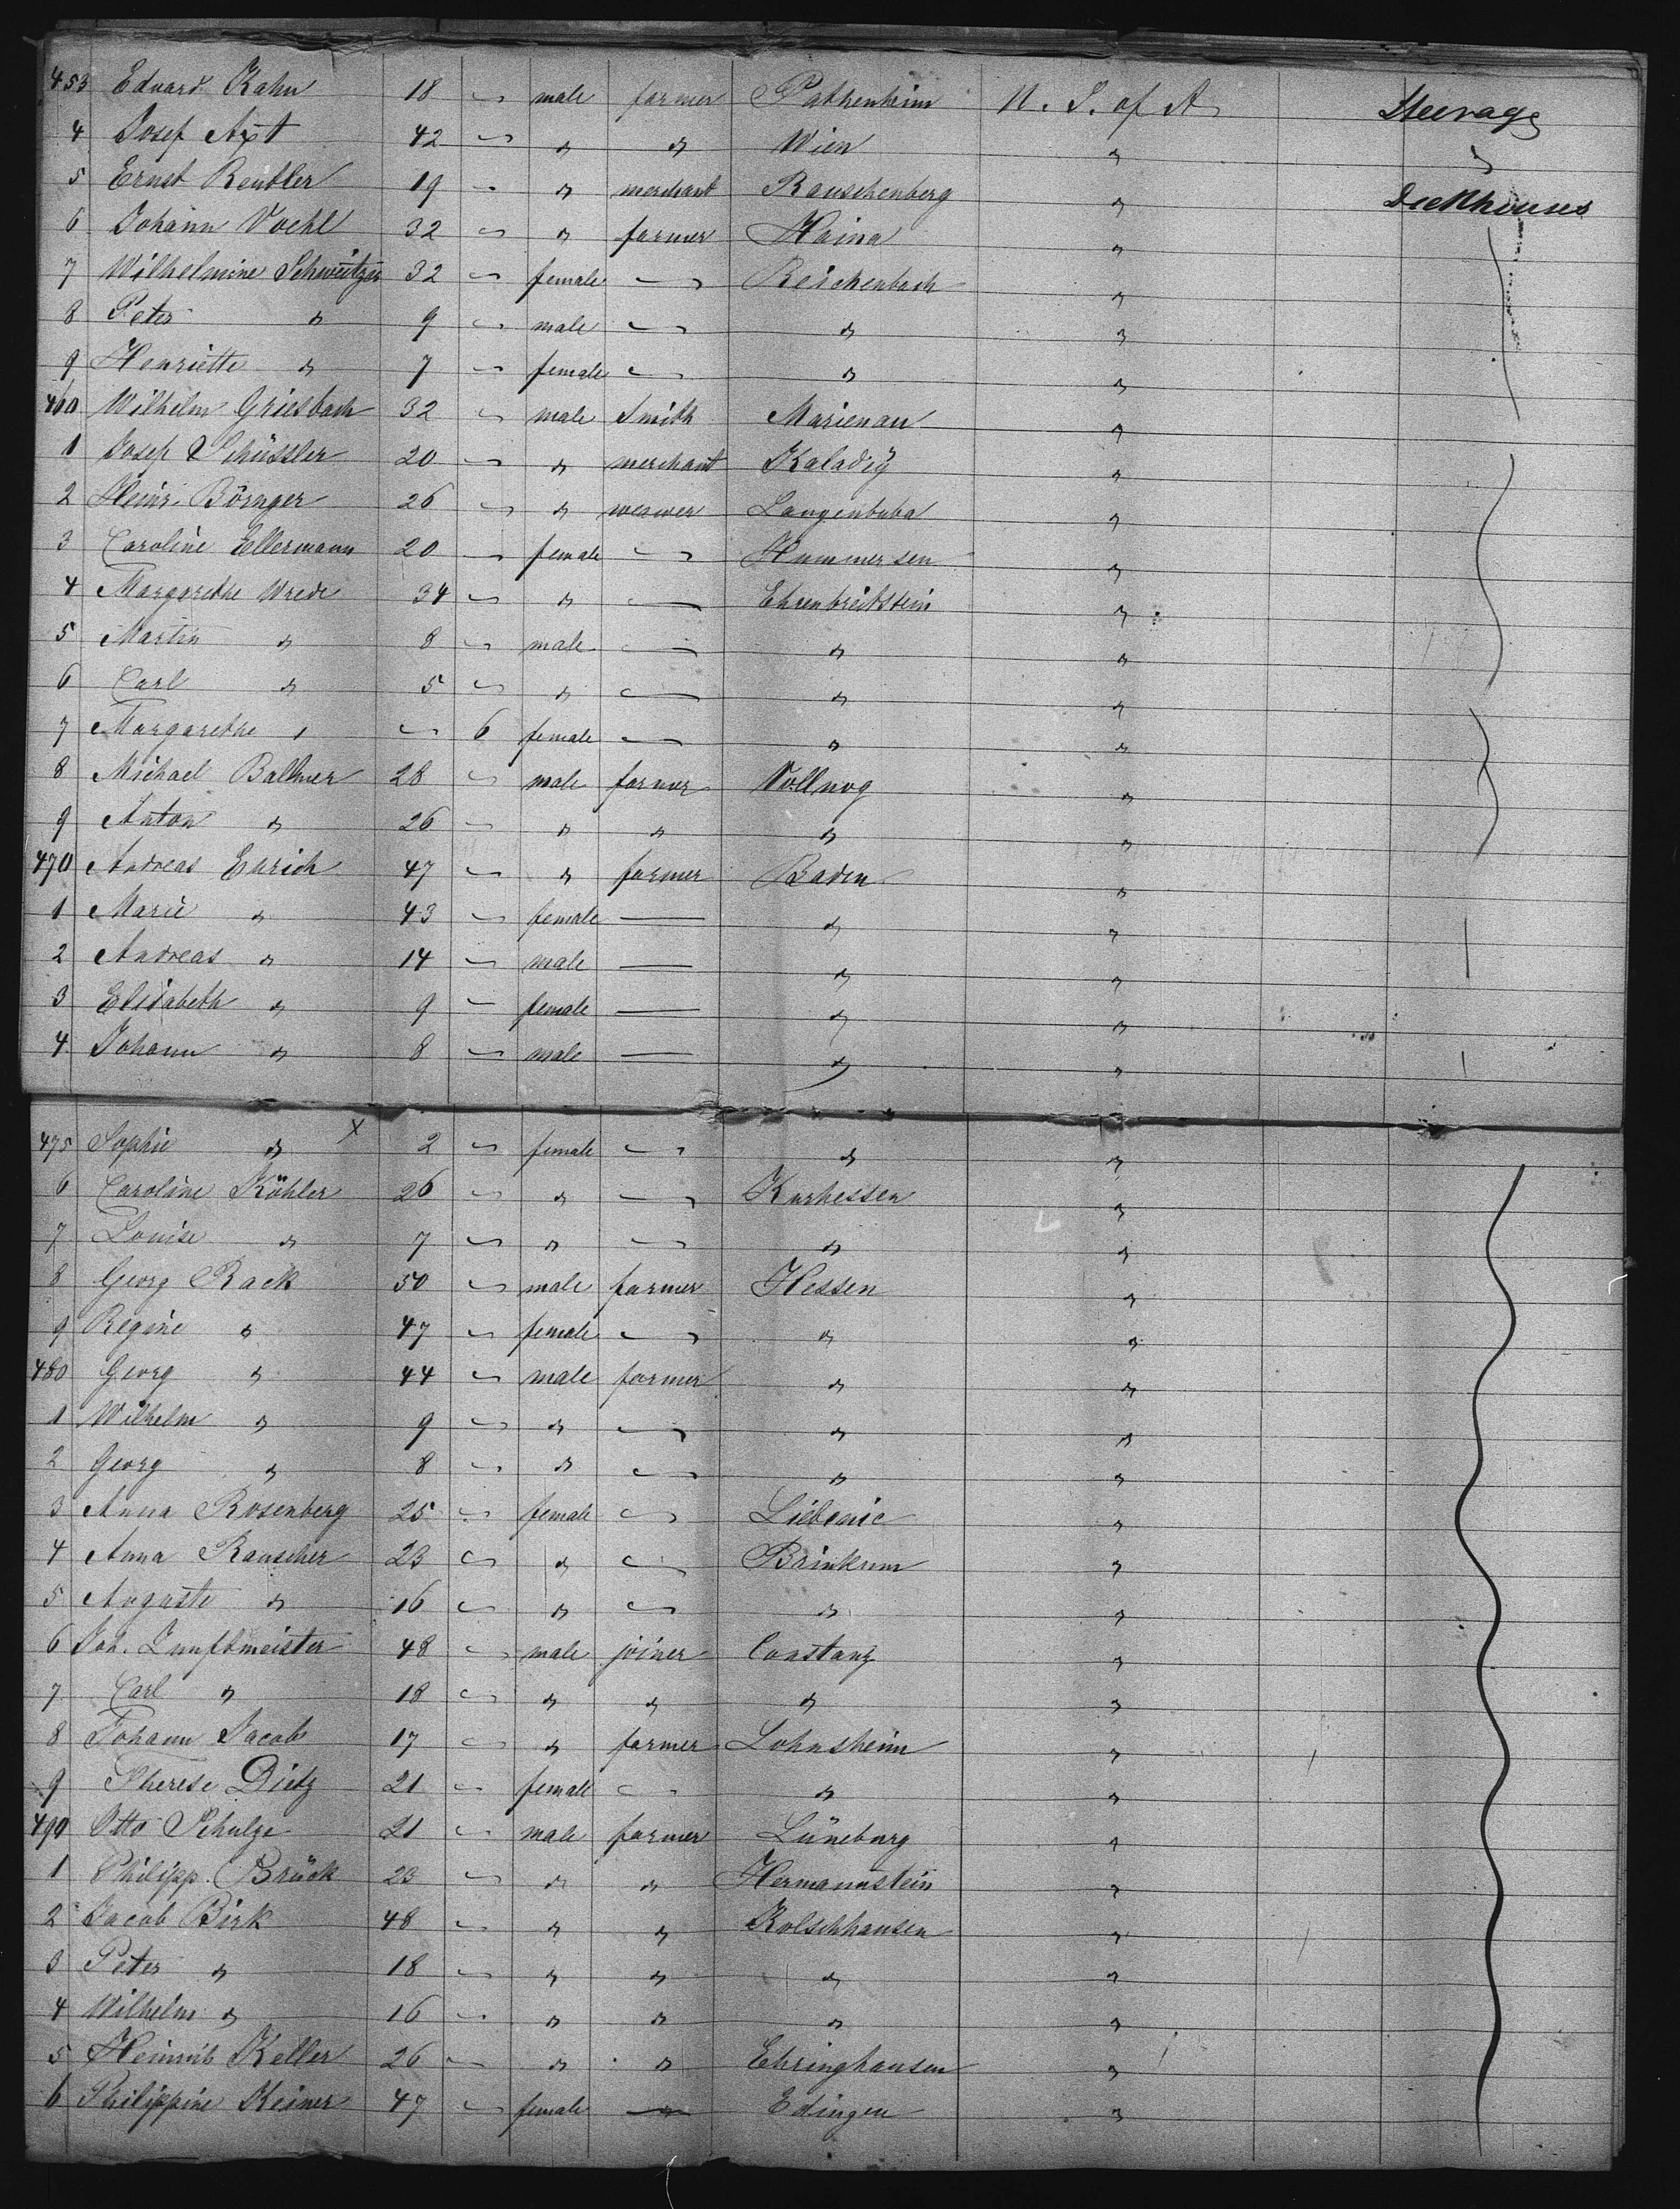 453 Eduard Kahn 18 — male farmer Pathenheim U. S. of A Steerage
4 Josef Axt 42 — " " Wien " "
5 Ernst Reutler 19 — " merchant Rauschenberg " Deckhouses
6 Johann Voehl 32 — " farmer Haina "
7 Wilhelmine Schweitzer 32 — female — Reichenbach "
8 Peter " 9 — male — " "
9 Henriette " 7 — female — " "
460 Wilhelm Griesbach 32 — male Smith Marienau "
1 Josef Schüssler 20 — " merchant Kaladey "
2 Heinr. Börnger 26 — " weawer Langenbuba "
3 Caroline Ellermann 20 — female — Hummersen "
4 Margarethe Wrede 34 — " — Ehrenbreitstein "
5 Martin " 8 — male — " "
6 Carl " 5 — " — " "
7 Margarethe " — 6 female — " "
8 Michael Ballmer 28 — male farmer Vollnog "
9 Anton " 26 — " " " "
470 Andreas Ehrich 47 — " farmer Baden "
1 Marie " 43 — female — " "
2 Andreas " 14 — male — " "
3 Elisabeth " 9 — female — " "
4 Johann " 8 — male — " "
475 Sophie " x 2 — female — " "
6 Caroline Köhler 26 — " — Kurhessen "
7 Louise " 7 — " — " "
8 Georg Rack 50 — male farmer Hessen "
9 Regine " 47 — female — " "
480 Georg " 44 — male farmer " "
1 Wilhelm " 9 — " — " "
2 Georg " 8 — " — " "
3 Anna Rosenberg 25 — female — Liebenic "
4 Anna Rauscher 23 — " — Brinkum "
5 Auguste " 16 — " — " "
6 Joh. Zunftmeister 48 — male joiner Constanz "
7 Carl " 18 — " " " "
8 Johann Jacob 17 — " farmer Lohnsheim "
9 Therese Dietz 21 — female — " "
490 Otto Schulze 21 — male farmer Lüneburg "
1 Philipp Brück 23 — " " Hermannstein "
2 Jacob Birk 48 — " " Kolschhausen "
3 Peter " 18 — " " " "
4 Wilhelm " 16 — " " " "
5 Heinrich Keller 26 — " " Ehringhausen "
6 Philippine Keiner 47 — female — Edingen "